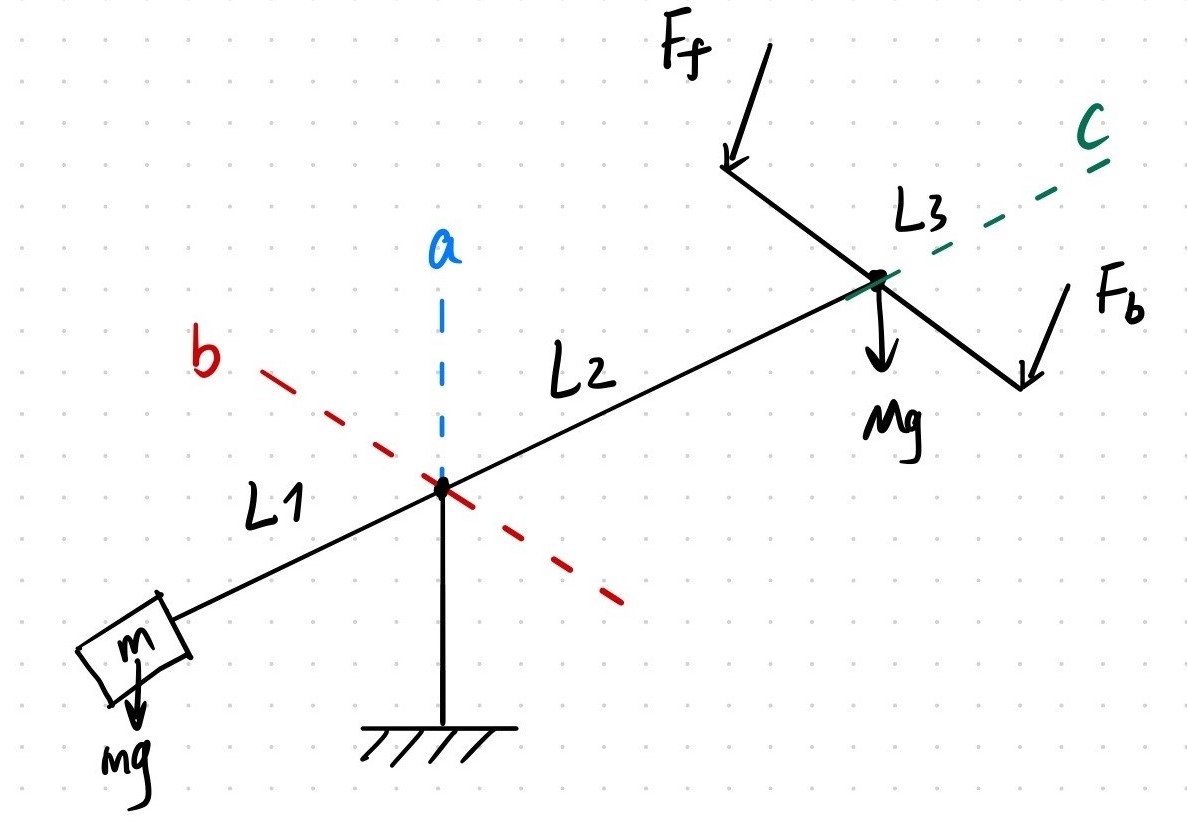 Ff
C
L3
a
Fb
b
L2
Mg
L1
m
mg